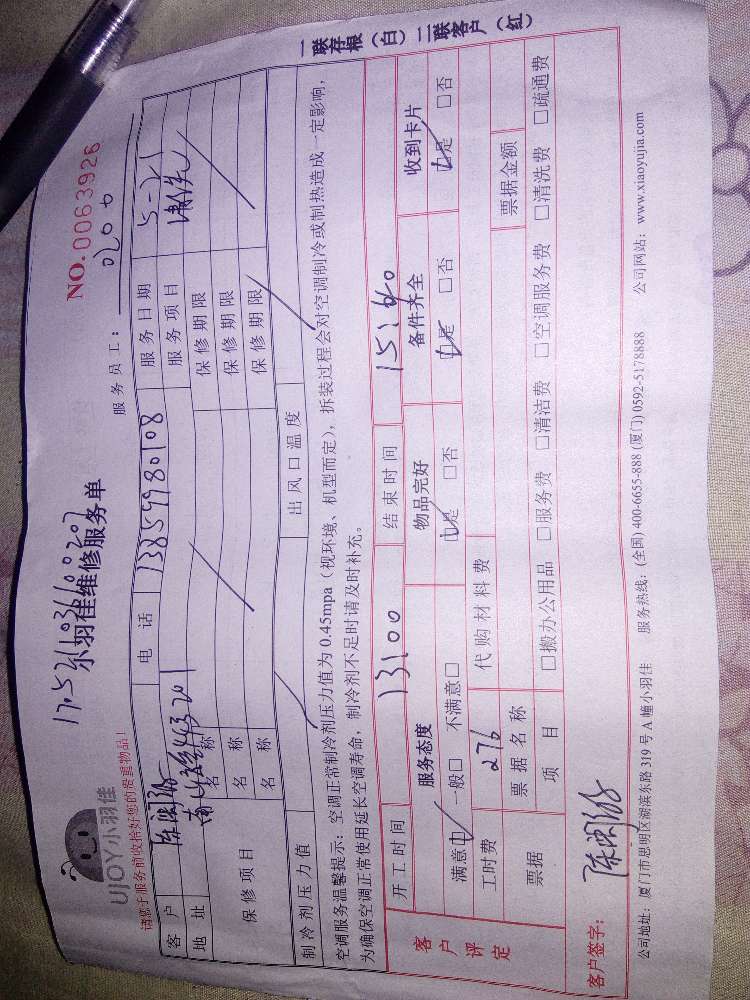 UJOY小羽佳
请您于服务前收拾好您的贵重物品!
小羽佳维修服务单
NO.0063926
服务员工: 0200
客户 电话 13859980108 服务日期 5-21
地址 服务项目
保修项目 名称 保修期限
名称 保修期限
名称 保修期限
制冷剂压力值 出风口温度
空调服务温馨提示:空调正常制冷剂压力值为0.45mpa(视环境、机型而定),拆装过程会对空调制冷或制热造成一定影响,
为确保空调正常使用延长空调寿命,制冷剂不足时请及时补充。
客户评定
开工时间 13:00 结束时间 15:40
服务态度 物品完好 备件齐全 收到卡片
满意☑ 一般□ 不满意□ ☑是 □否 ☑是 □否 ☑是 □否
工时费 276 代购材料费
票据 票据名称 票据金额
项目 □搬办公用品 □服务费 □清洁费 □空调服务费 □清洗费 □疏通费
客户签字:
公司地址:厦门市思明区湖滨东路319号A幢小羽佳 服务热线:(全国)400-6655-888 (厦门)0592-5178888 公司网站:www.xiaoyujia.com
一联存根(白)二联客户(红)